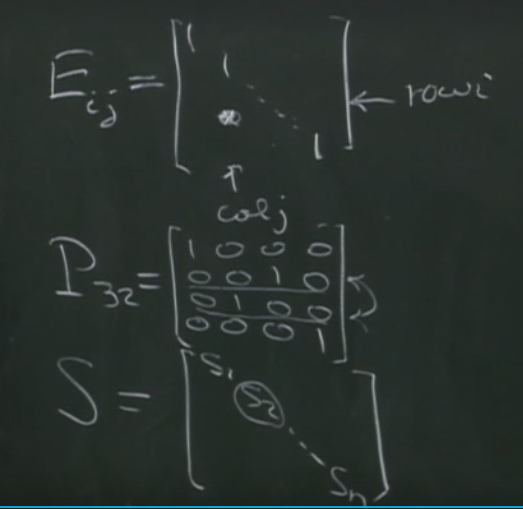 E_ij = [ 1
1
*
1 ] ← row i
↑
col j
P_32 = [ 1 0 0 0
0 0 1 0
0 1 0 0
0 0 0 1 ]
S = [ S_1
S_2
S_n ]